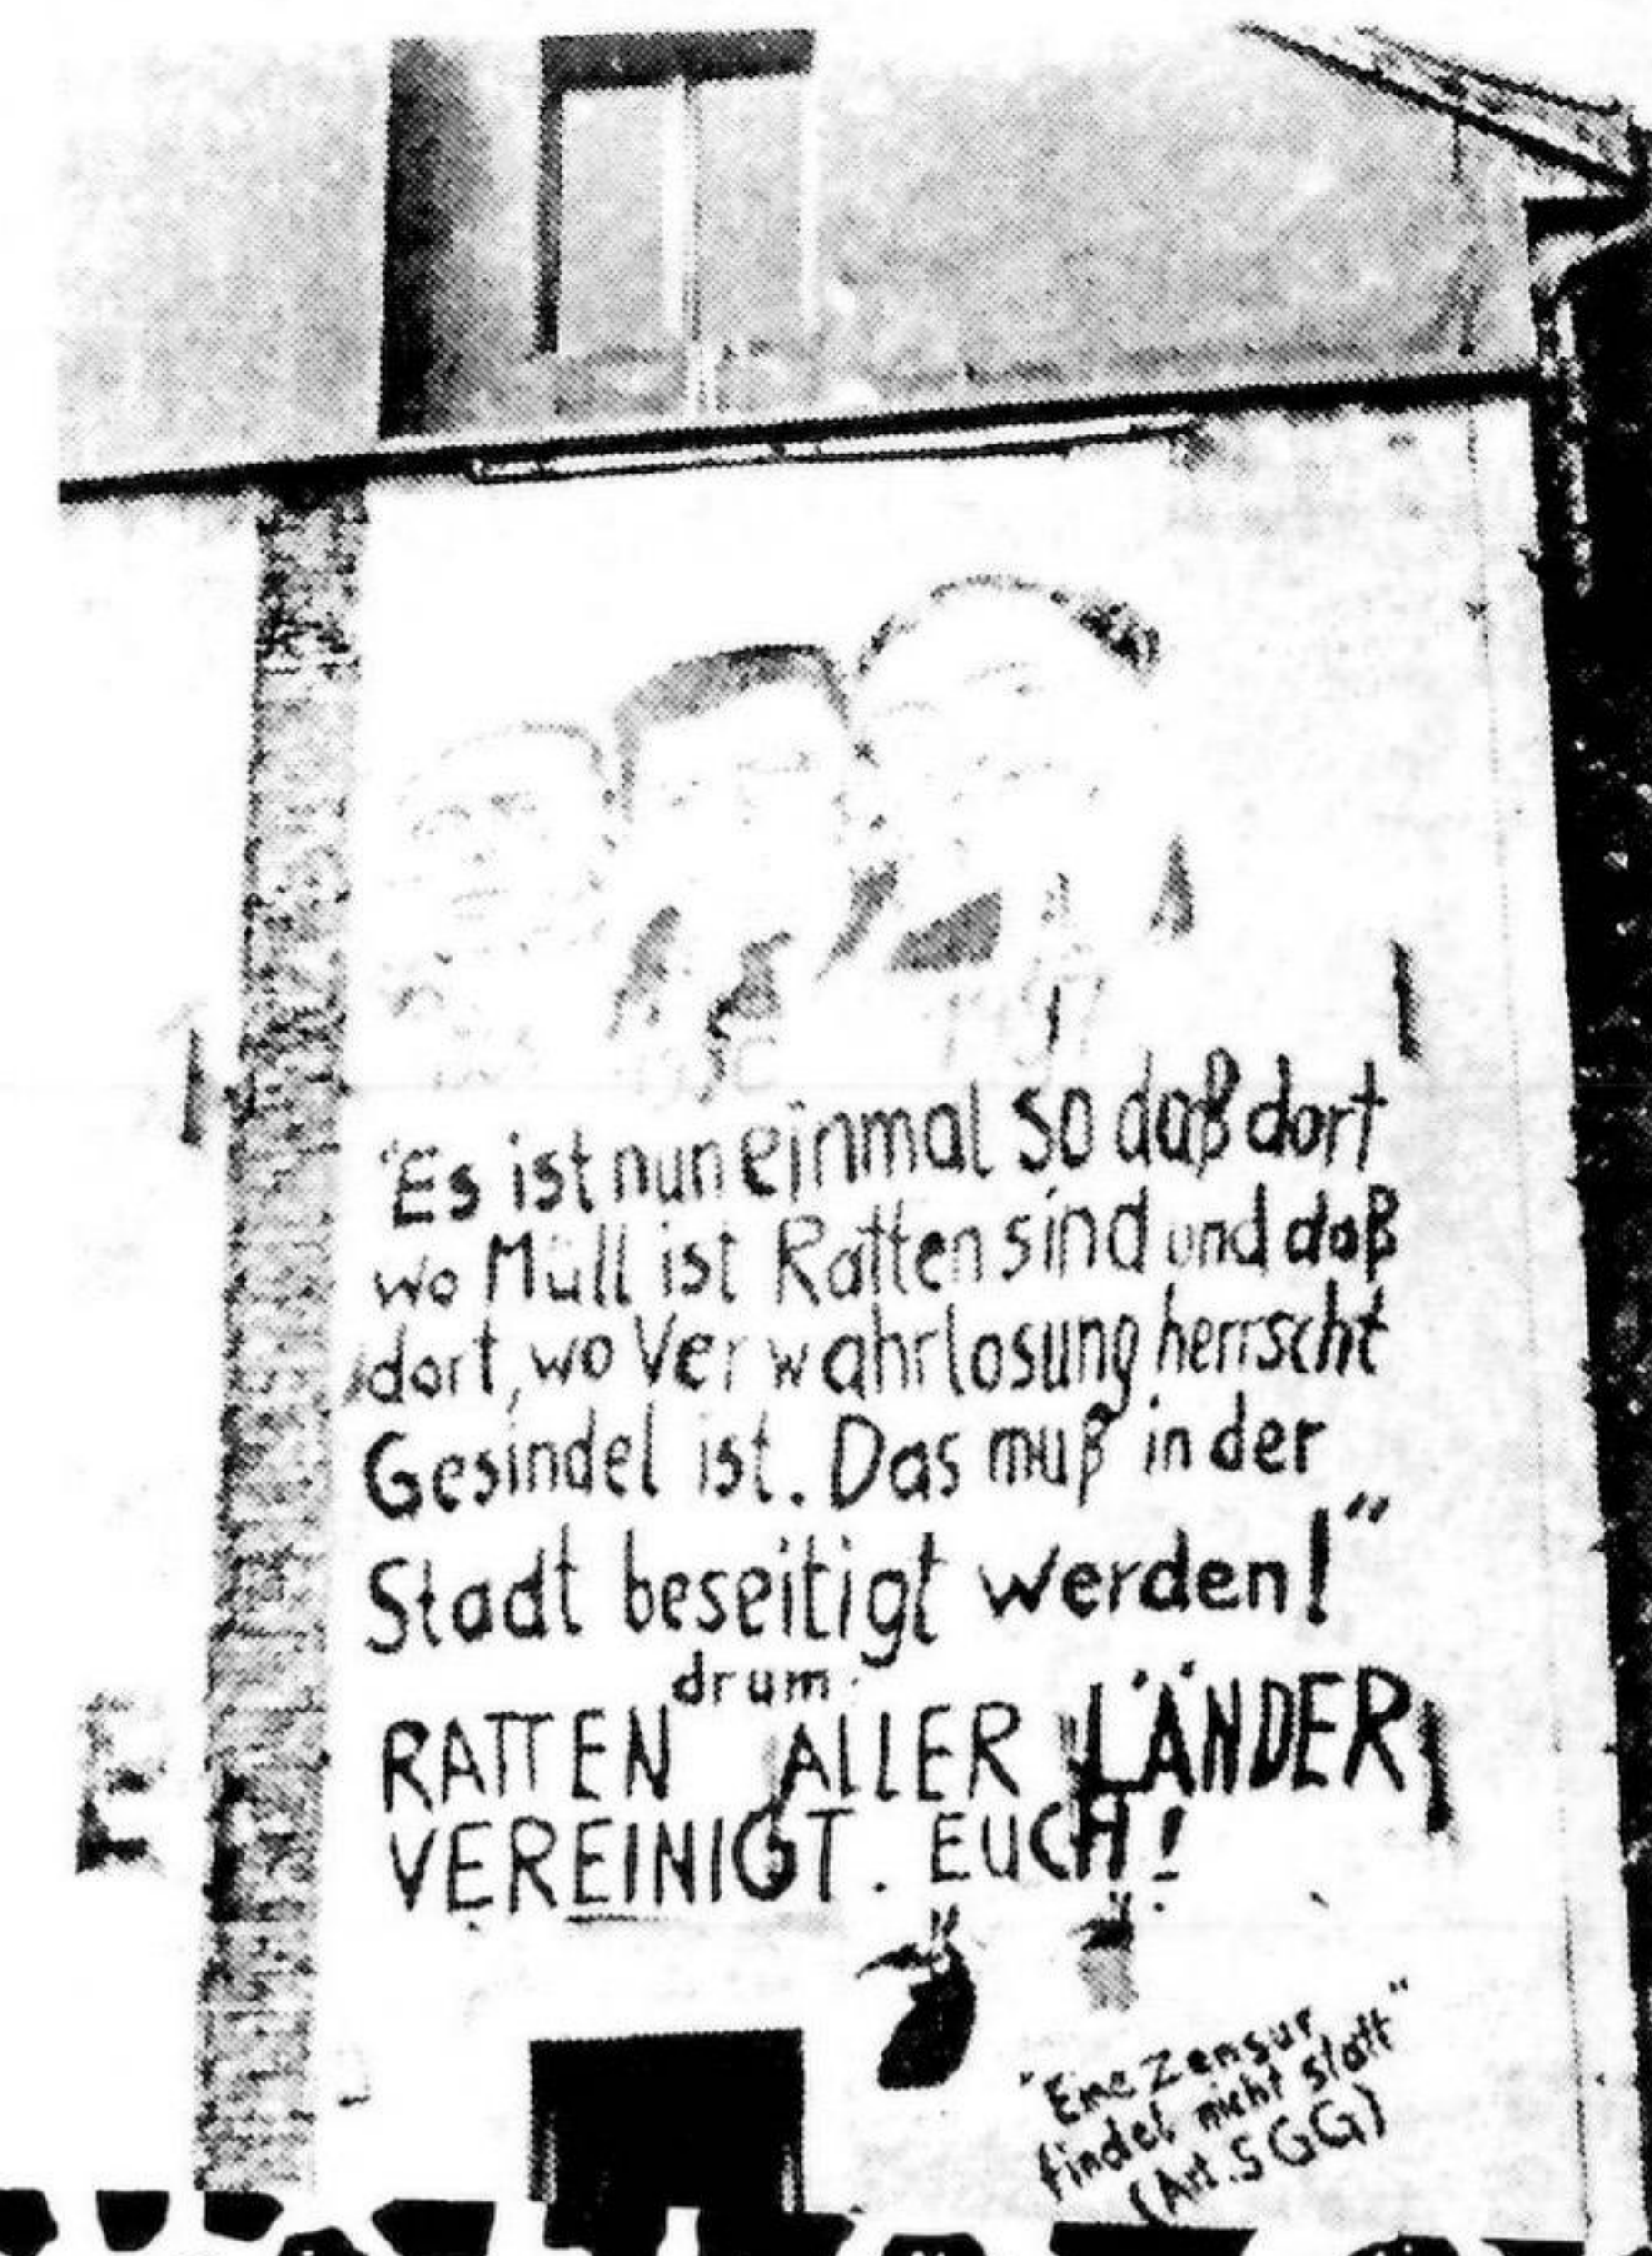 "Es ist nun einmal so daß dort
wo Müll ist Ratten sind und daß
dort, wo Verwahrlosung herrscht
Gesindel ist. Das muß in der
Stadt beseitigt werden!"
drum:
RATTEN ALLER LÄNDER
VEREINIGT. EUCH!
"Eine Zensur
findet nicht statt"
(Art. 5 GG)